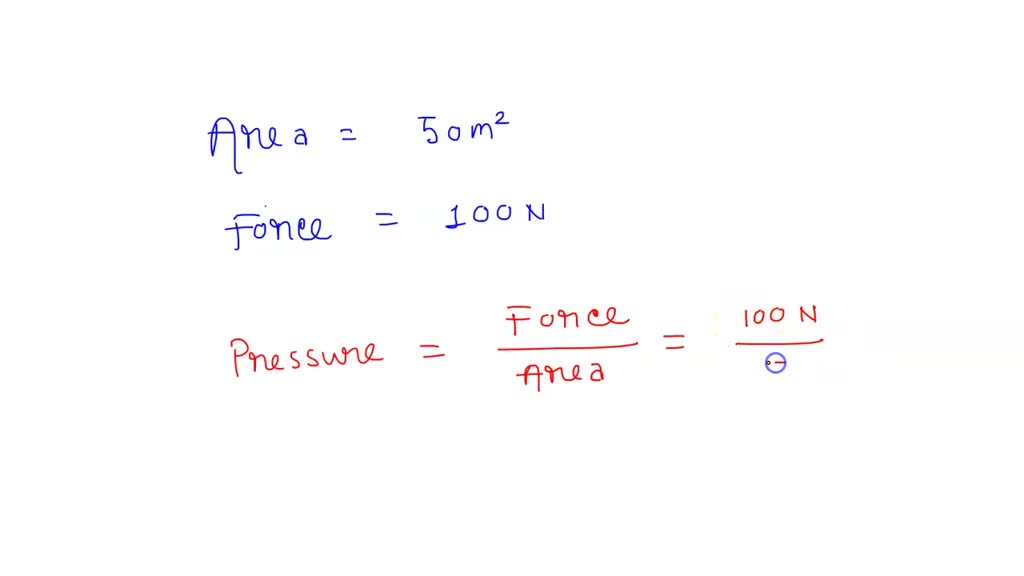 Area = 50m²
Force = 100 N
Pressure = Force / Area = 100 N